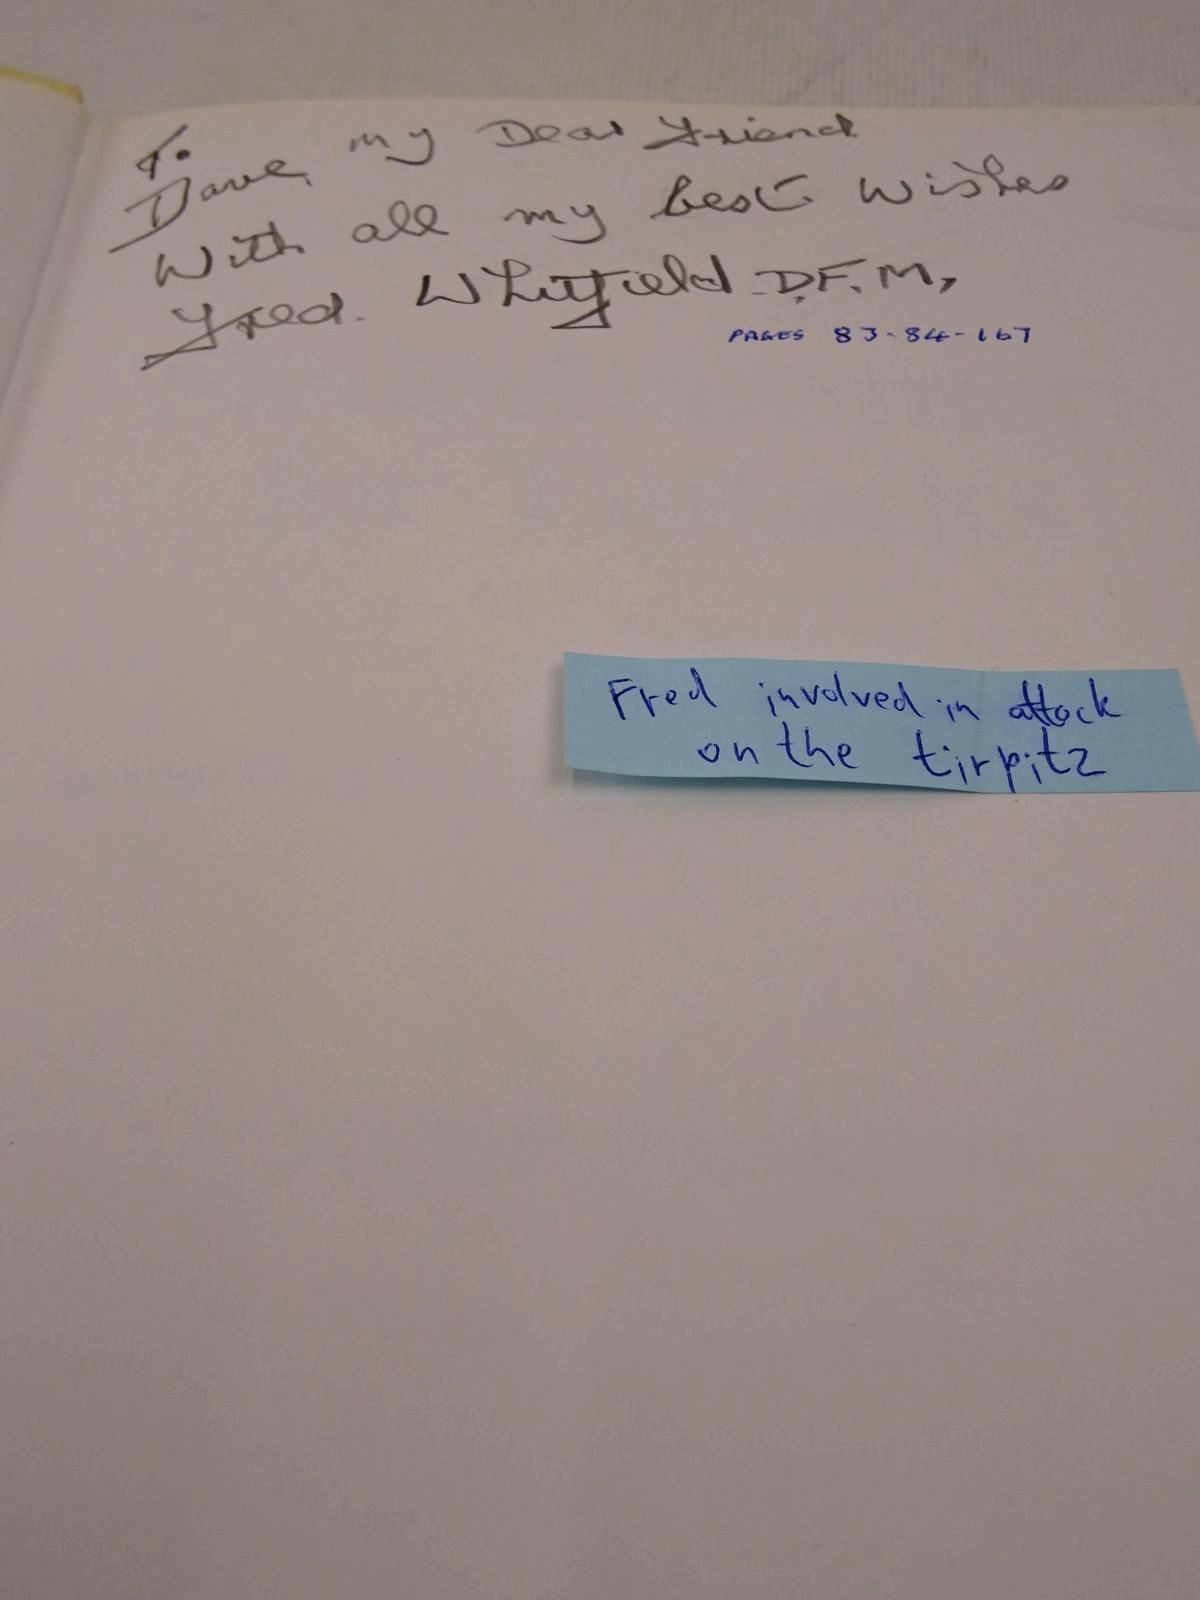 To
Dave, my Dear Friend
With all my best wishes
Fred. Whitfield D.F.M,
PAGES 83-84-167
Fred involved in attack
on the tirpitz